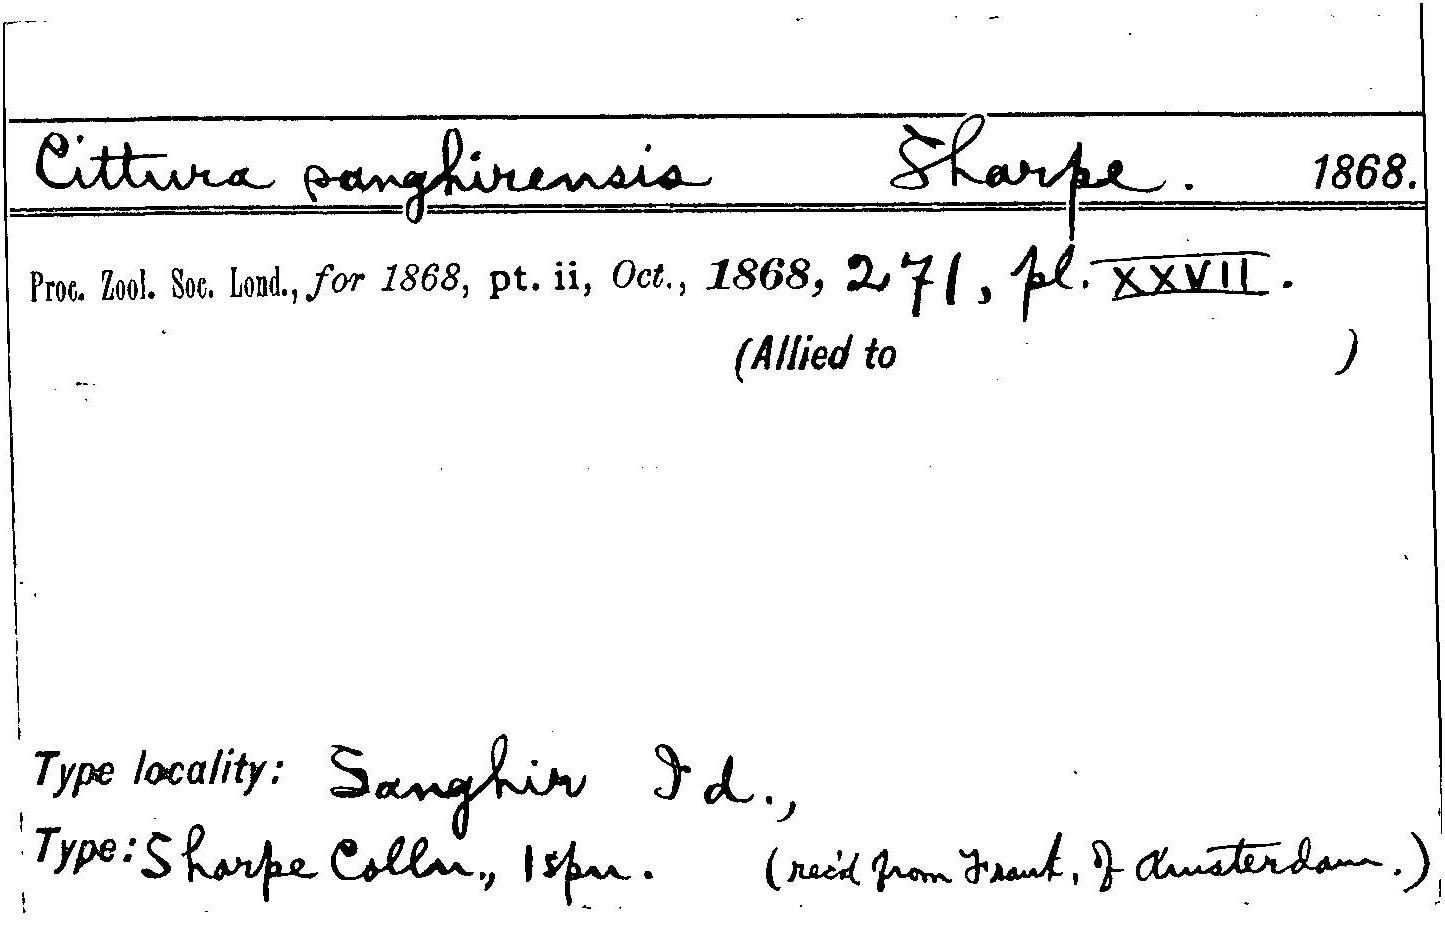 Cittura sanghirensis Sharpe. 1868.
Proc. Zool. Soc. Lond., for 1868, pt. ii, Oct., 1868, 271, pl. XXVII.
(Allied to )
Type locality: Sanghir Id.,
Type: Sharpe Colln., 1 spn. (rec'd from Frank, of Amsterdam.)